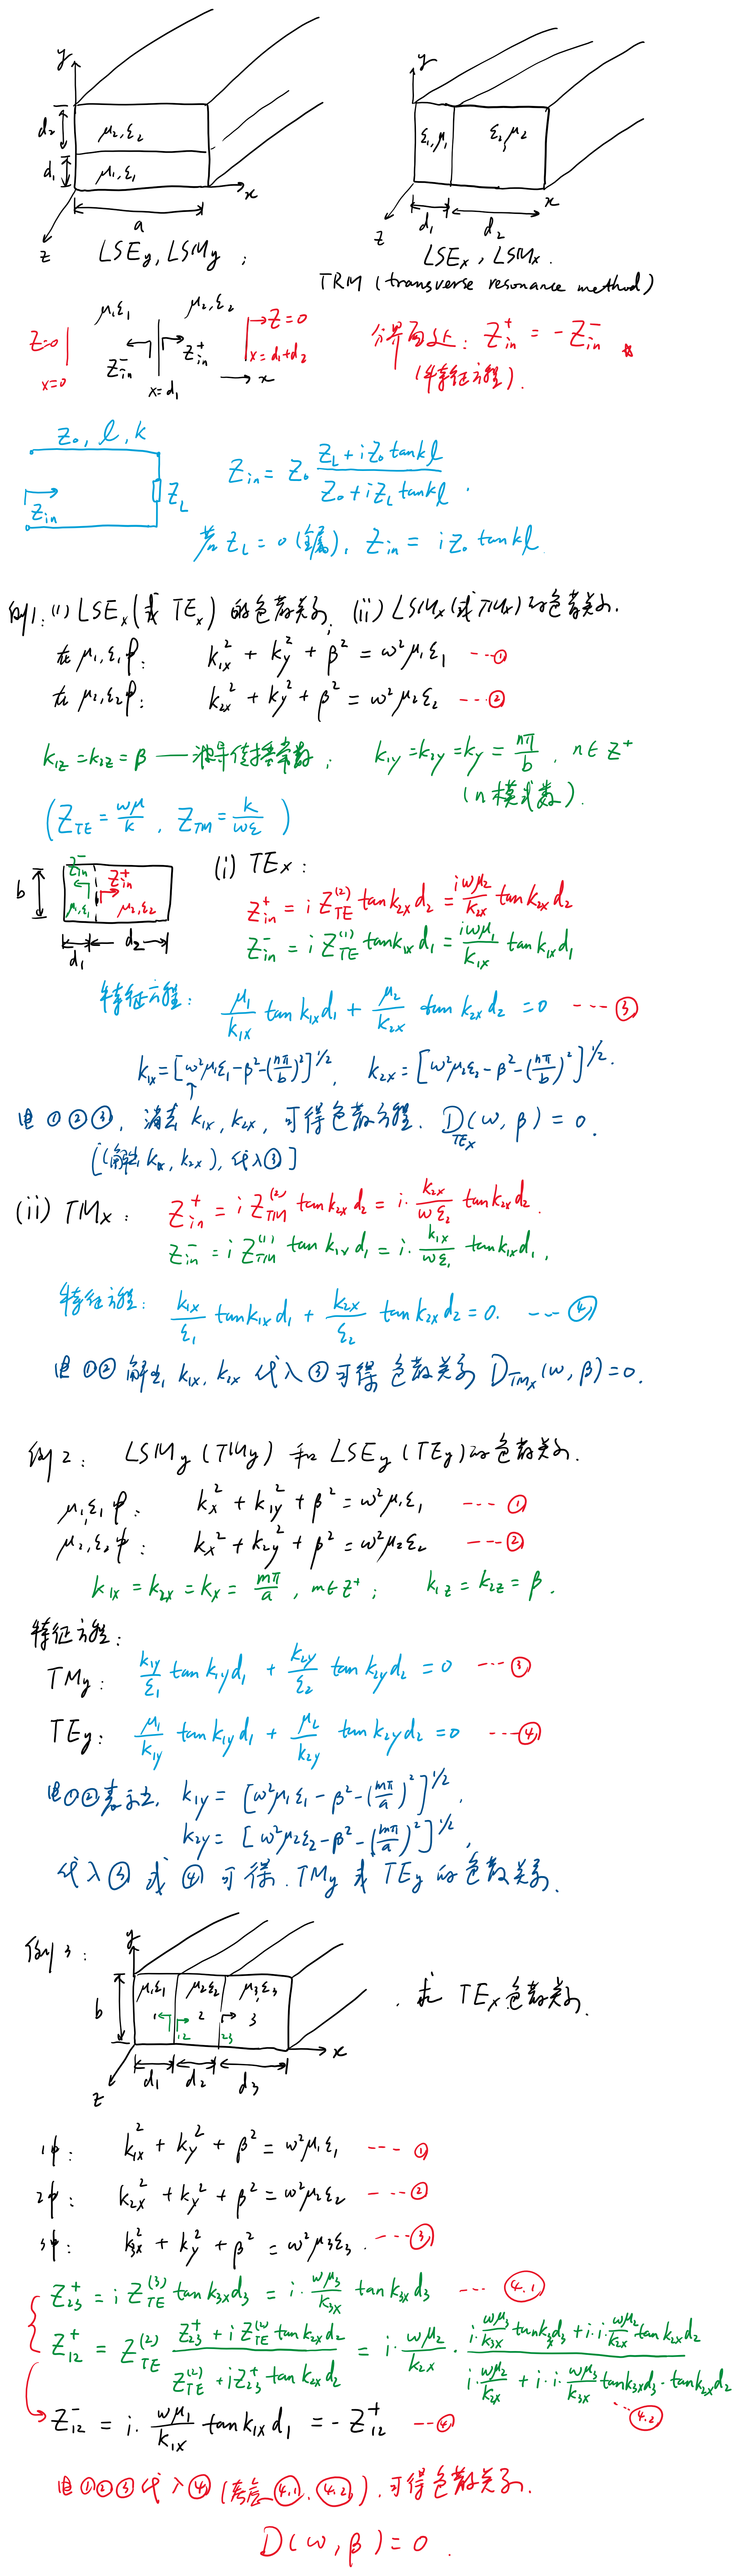 y
y
d₂
μ₂,ε₂
d₁
μ₁,ε₁
ε₁,μ₁
ε₂,μ₂
x
x
a
d₁
d₂
z
z
LSE_y, LSM_y ;
LSE_x, LSM_x.
TRM (transverse resonance method)
μ₁ε₁
μ₂,ε₂
Z=0
Z=0
Z_in^-
Z_in^+
x=0
x=d₁
x=d₁+d₂
x
分界面处: Z_in^+ = -Z_in^-
(特征方程).
Z₀, l, k
Z_in
Z_L
Z_in = Z₀ (Z_L + iZ₀ tankl)/(Z₀ + iZ_L tankl).
若 Z_L = 0 (金属), Z_in = iZ₀ tankl.
例1: (i) LSE_x (或 TE_x) 的色散关系; (ii) LSM_x (或TM_x) 的色散关系.
在 μ₁,ε₁中: k_1x² + k_y² + β² = ω²μ₁ε₁ ---①
在 μ₂,ε₂中: k_2x² + k_y² + β² = ω²μ₂ε₂ ---②
k_1z = k_2z = β —波导传播常数; k_1y = k_2y = k_y = nπ/b, n∈Z⁺
(n 模式数).
(Z_TE = ωμ/k, Z_TM = k/ωε)
b
Z_in^-
Z_in^+
μ₁,ε₁
μ₂,ε₂
d₁
d₂
(i) TE_x:
Z_in^+ = i Z_TE^(2) tank_2x d₂ = iωμ₂/k_2x tank_2x d₂
Z_in^- = i Z_TE^(1) tank_1x d₁ = iωμ₁/k_1x tank_1x d₁
特征方程: μ₁/k_1x tan k_1x d₁ + μ₂/k_2x tan k_2x d₂ = 0 ---③
k_1x = [ω²μ₁ε₁-β²-(nπ/b)²]^1/2, k_2x = [ω²μ₂ε₂-β²-(nπ/b)²]^1/2.
由①②③, 消去 k_1x, k_2x, 可得色散方程. D_TEx(ω, β) = 0.
[(解出 k_1x, k_2x), 代入③]
(ii) TM_x: Z_in^+ = i Z_TM^(2) tank_2x d₂ = i· k_2x/ωε₂ tank_2x d₂.
Z_in^- = i Z_TM^(1) tan k_1x d₁ = i· k_1x/ωε₁ tank_1x d₁,
特征方程: k_1x/ε₁ tank_1x d₁ + k_2x/ε₂ tan k_2x d₂ = 0. ---④
由①②解出 k_1x, k_2x 代入③可得色散关系 D_TMx(ω, β)=0.
例2: LSM_y (TM_y) 和 LSE_y (TE_y)的色散关系.
μ₁,ε₁中: k_x² + k_1y² + β² = ω²μ₁ε₁ ---①
μ₂,ε₂中: k_x² + k_2y² + β² = ω²μ₂ε₂ ---②
k_1x = k_2x = k_x = mπ/a, m∈Z⁺; k_1z = k_2z = β.
特征方程:
TM_y: k_1y/ε₁ tan k_1y d₁ + k_2y/ε₂ tan k_2y d₂ = 0 ---③
TE_y: μ₁/k_1y tan k_1y d₁ + μ₂/k_2y tan k_2y d₂ = 0 ---④
由①②表示出 k_1y = [ω²μ₁ε₁-β²-(mπ/a)²]^1/2,
k_2y = [ω²μ₂ε₂-β²-(mπ/a)²]^1/2,
代入③或④可得. TM_y 或 TE_y 的色散关系.
例3:
y
b
μ₁,ε₁
μ₂ε₂
μ₃,ε₃
1
2
3
12
23
x
d₁
d₂
d₃
z
. 求 TE_x 色散关系.
1中: k_1x² + k_y² + β² = ω²μ₁ε₁ ---①
2中: k_2x² + k_y² + β² = ω²μ₂ε₂ ---②
3中: k_3x² + k_y² + β² = ω²μ₃ε₃. ---③
Z_23^+ = i Z_TE^(3) tan k_3x d₃ = i· ωμ₃/k_3x tan k_3x d₃ ---(4.1)
Z_12^+ = Z_TE^(2) (Z_23^+ + i Z_TE^(2) tan k_2x d₂)/(Z_TE^(2) + iZ_23^+ tan k_2x d₂) = i· ωμ₂/k_2x · (i·ωμ₃/k_3x tank_3x d₃ + i·i·ωμ₂/k_2x tan k_2x d₂)/(i·ωμ₂/k_2x + i·i·ωμ₃/k_3x tank_3x d₃·tank_2x d₂) ---(4.2)
Z_12^- = i· ωμ₁/k_1x tan k_1x d₁ = -Z_12^+ ---④
由①②③代入④(考虑(4.1), (4.2)), 可得色散关系.
D(ω, β) = 0.